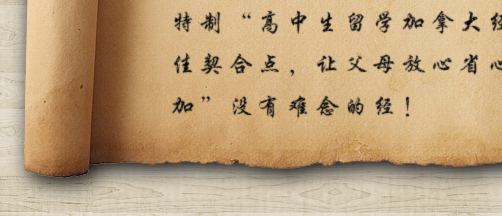 特制“高中生留学加拿大经
佳契合点，让父母放心省心
加”没有难念的经！